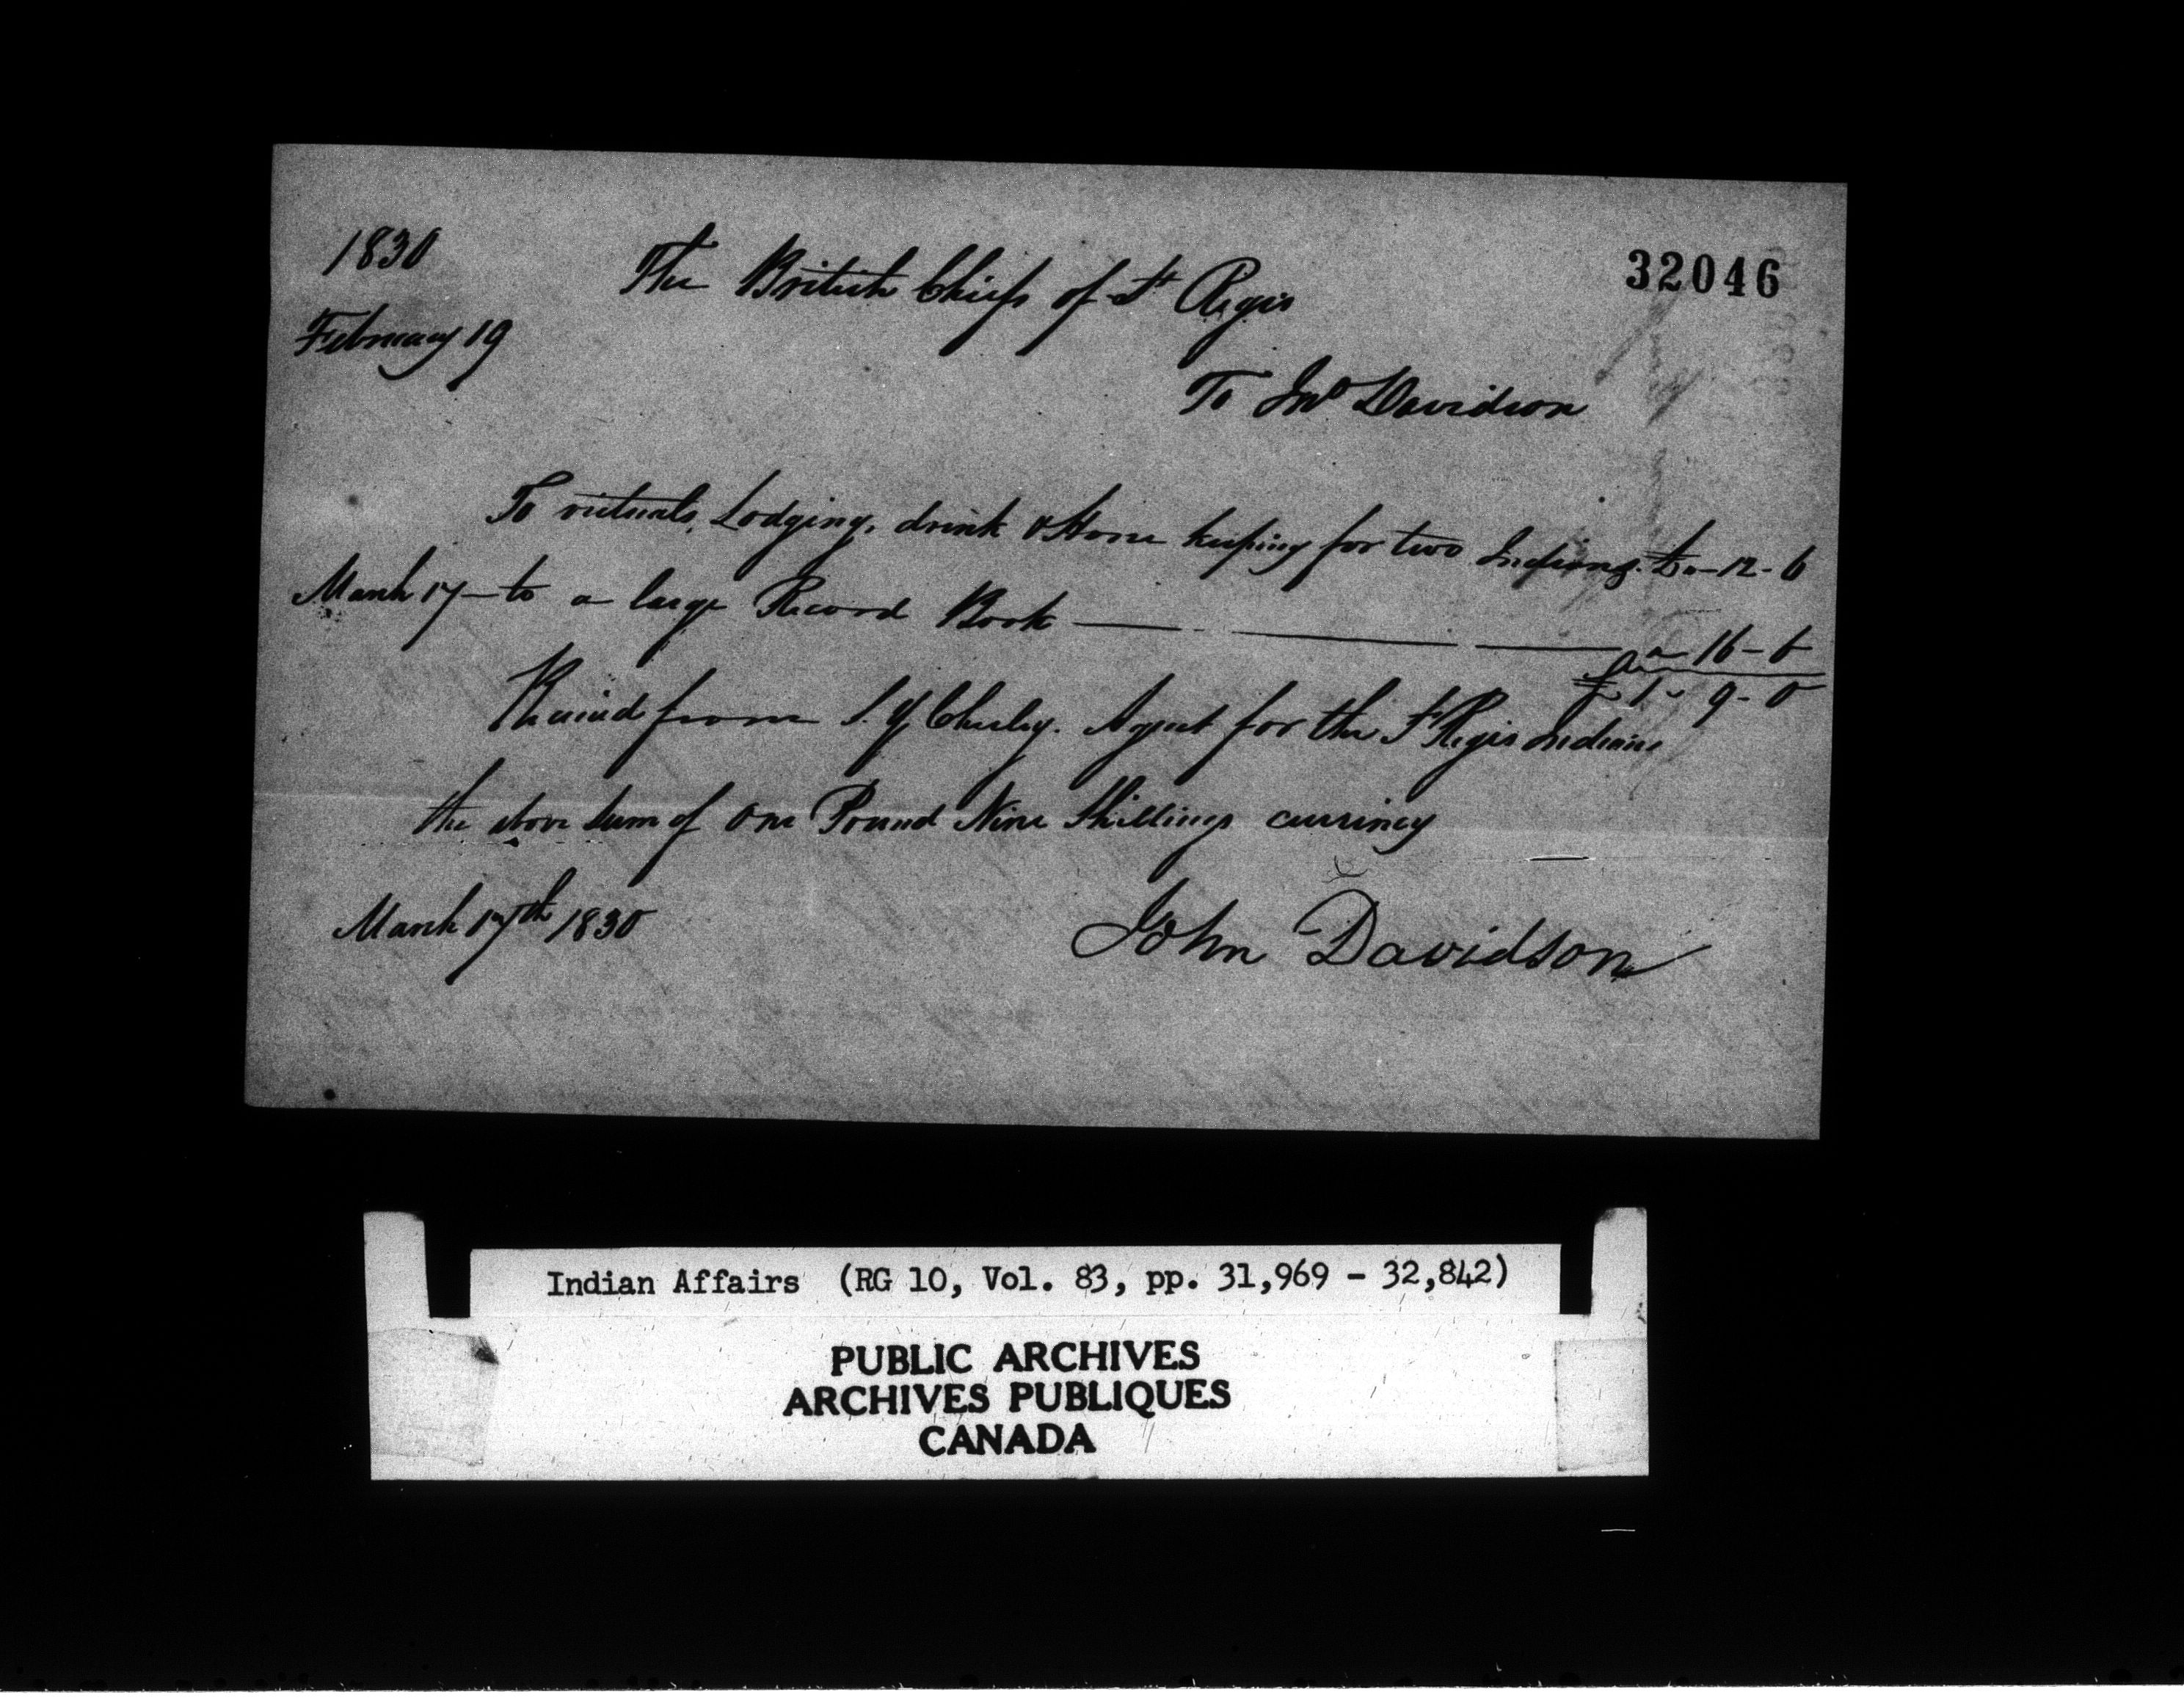 32046
1830
The British Chiefs of St Regis
February 19
To Jno Davidson
To victuals, Lodging, drink & Horse keeping for two Indians. £0-12-6
March 17 - to a large Record Book 0 16-6
£1-9-0
Received from S. Y. Chesley. Agent for the St Regis Indians
the above Sum of One Pound Nine Shillings currency
March 17th 1830
John Davidson
Indian Affairs (RG 10, Vol. 83, pp. 31,969 - 32,842)
PUBLIC ARCHIVES
ARCHIVES PUBLIQUES
CANADA